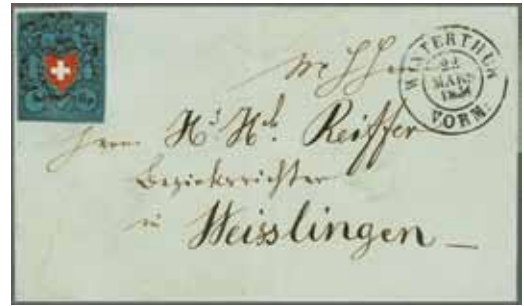 WINTERTHUR
22
MÄRZ
VORM.
Herrn Hs. Hch. Reiffer
Bezirksrichter
in Weisslingen